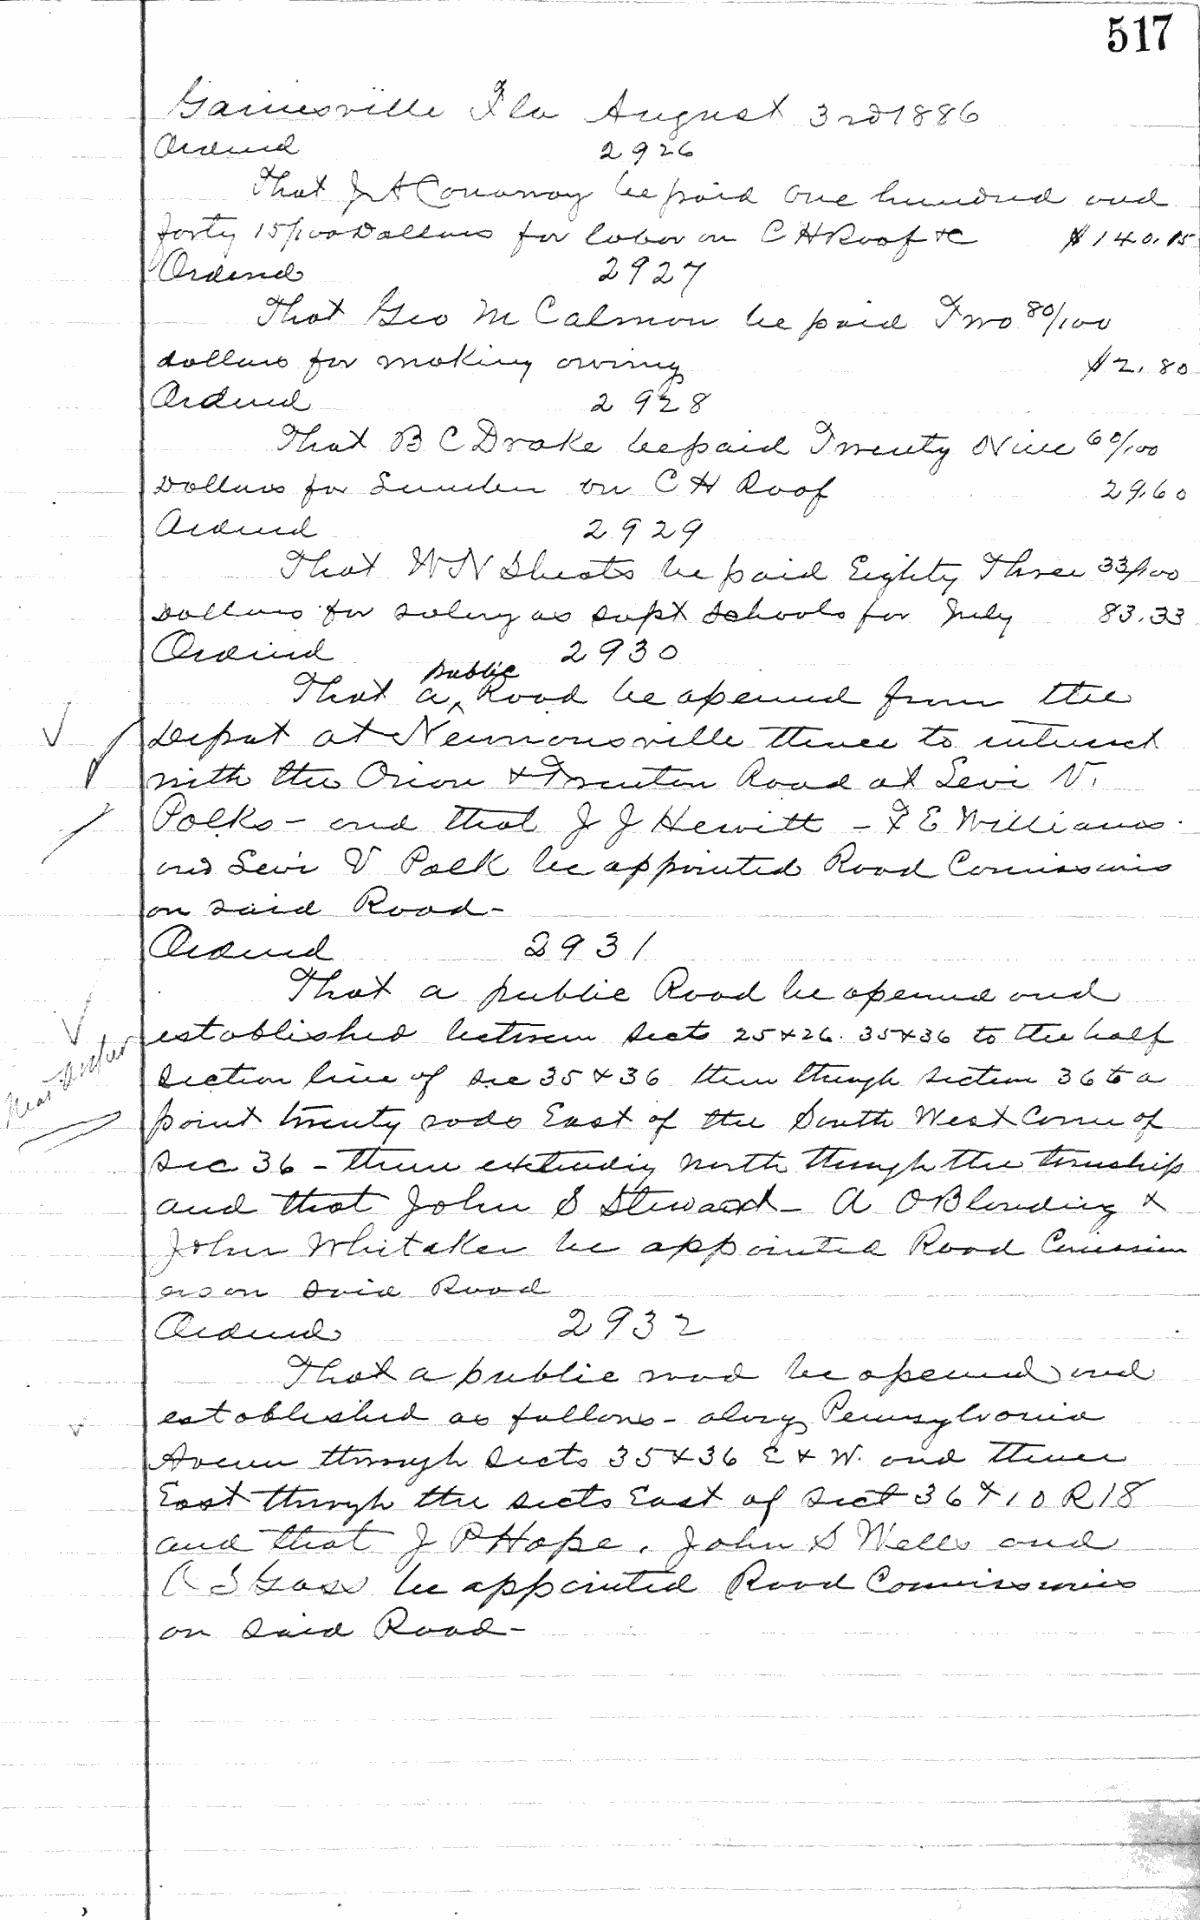 517
Gainesville Fla August 3rd 1886
Ordered 2926
That J A Conaway be paid One hundred and
forty 15/100 Dollars for labor on C H Roof &c $140.15
Ordered 2927
That Geo M Calmon be paid Two 80/100
dollars for making $2.80
Ordered 2928
That B C Drake be paid Twenty Nine 60/100
Dollars for Lumber on C H Roof 29.60
Ordered 2929
That W N Sheats be paid Eighty Three 33/100
Dollars for salery as supt schools for July 83.33
Ordered 2930
That a public Road be opened from the
Depot at Newnansville thence to intersect
with the Orion & Trenton Road at Levi V.
Polks – and that J J Hewitt – F E Williams
and Levi V Polk be appointed Road Comissioners
on said Road –
Ordered 2931
That a public Road be opened and
established between Sects 25 & 26. 35 & 36 to the half
Section line of Sec 35 & 36 then through section 36 to a
point twenty rods East of the South West Corner of
Sec 36 – then extending North through the township
and that John S Steward – A O Blonding &
John Whitaker be appointed Road Comission
ers on said Road
Near Archer
Ordered 2932
That a public road be opened and
established as follows – along Pennsylvania
Avenue through Sects 35 & 36 E & W. and thence
East through the sects East of sect 36 & 10 R 18
and that J P Hope, John S Wells and
be appointed Road Commissioners
on said Road –